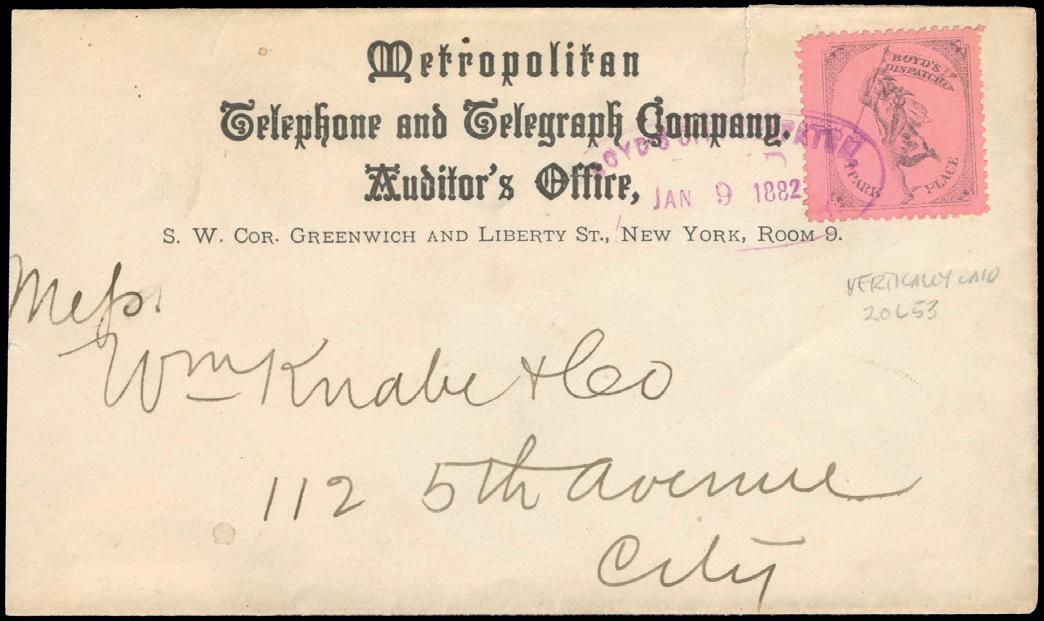 Metropolitan
Telephone and Telegraph Company,
Auditor's Office,
S. W. Cor. Greenwich and Liberty St., New York, Room 9.
BOYD'S
DISPATCH
PARK PLACE
BOYD'S
JAN 9 1882
VERTICALLY LAID
20L53
Mess.
Wm Knabe & Co
112 5th Avenue
City